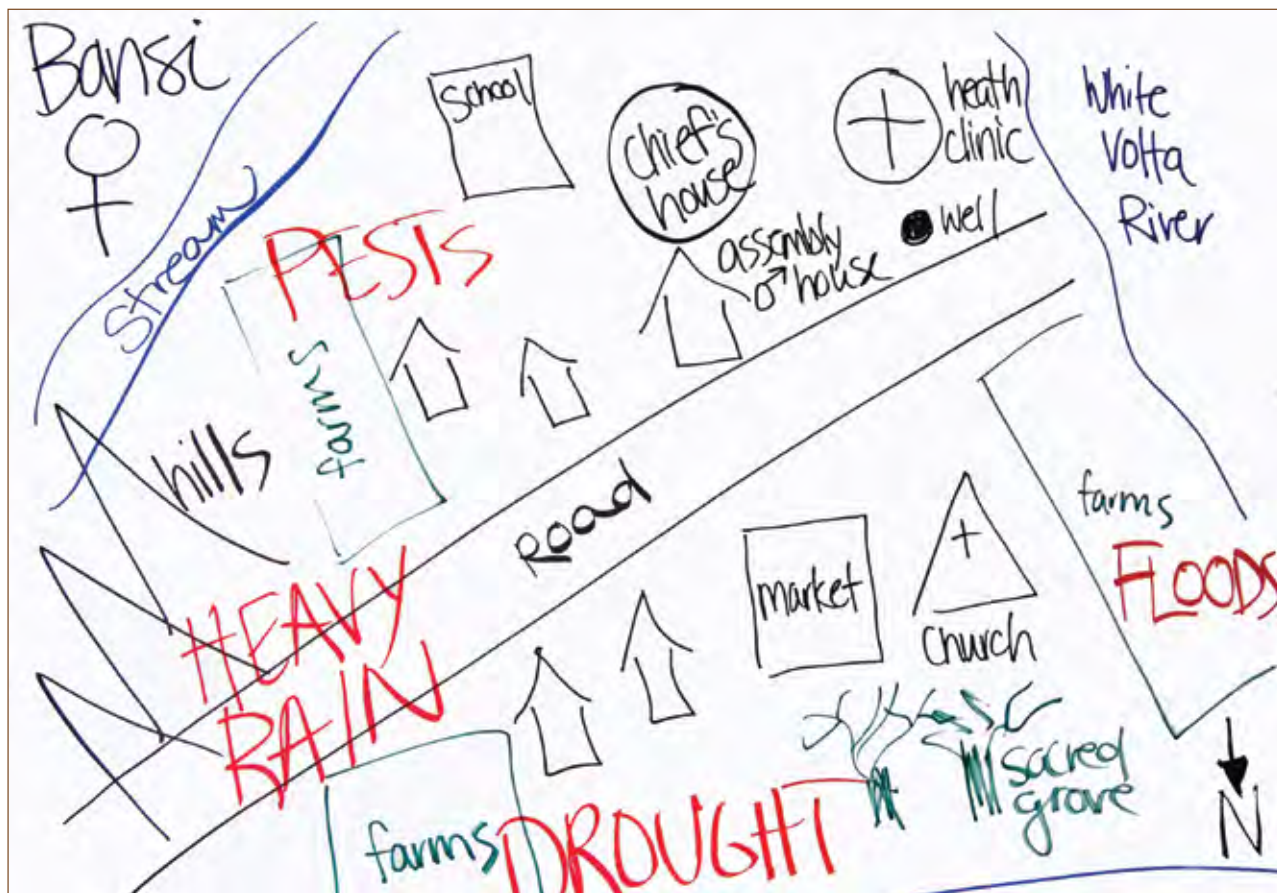 Bansi
Stream
school
chief's
house
heath
clinic
White
Volta
River
PESTS
assembly
♂ house
well
farms
hills
Road
farms
FLOODS
HEAVY
RAIN
market
church
sacred
grove
farms
DROUGHT
N